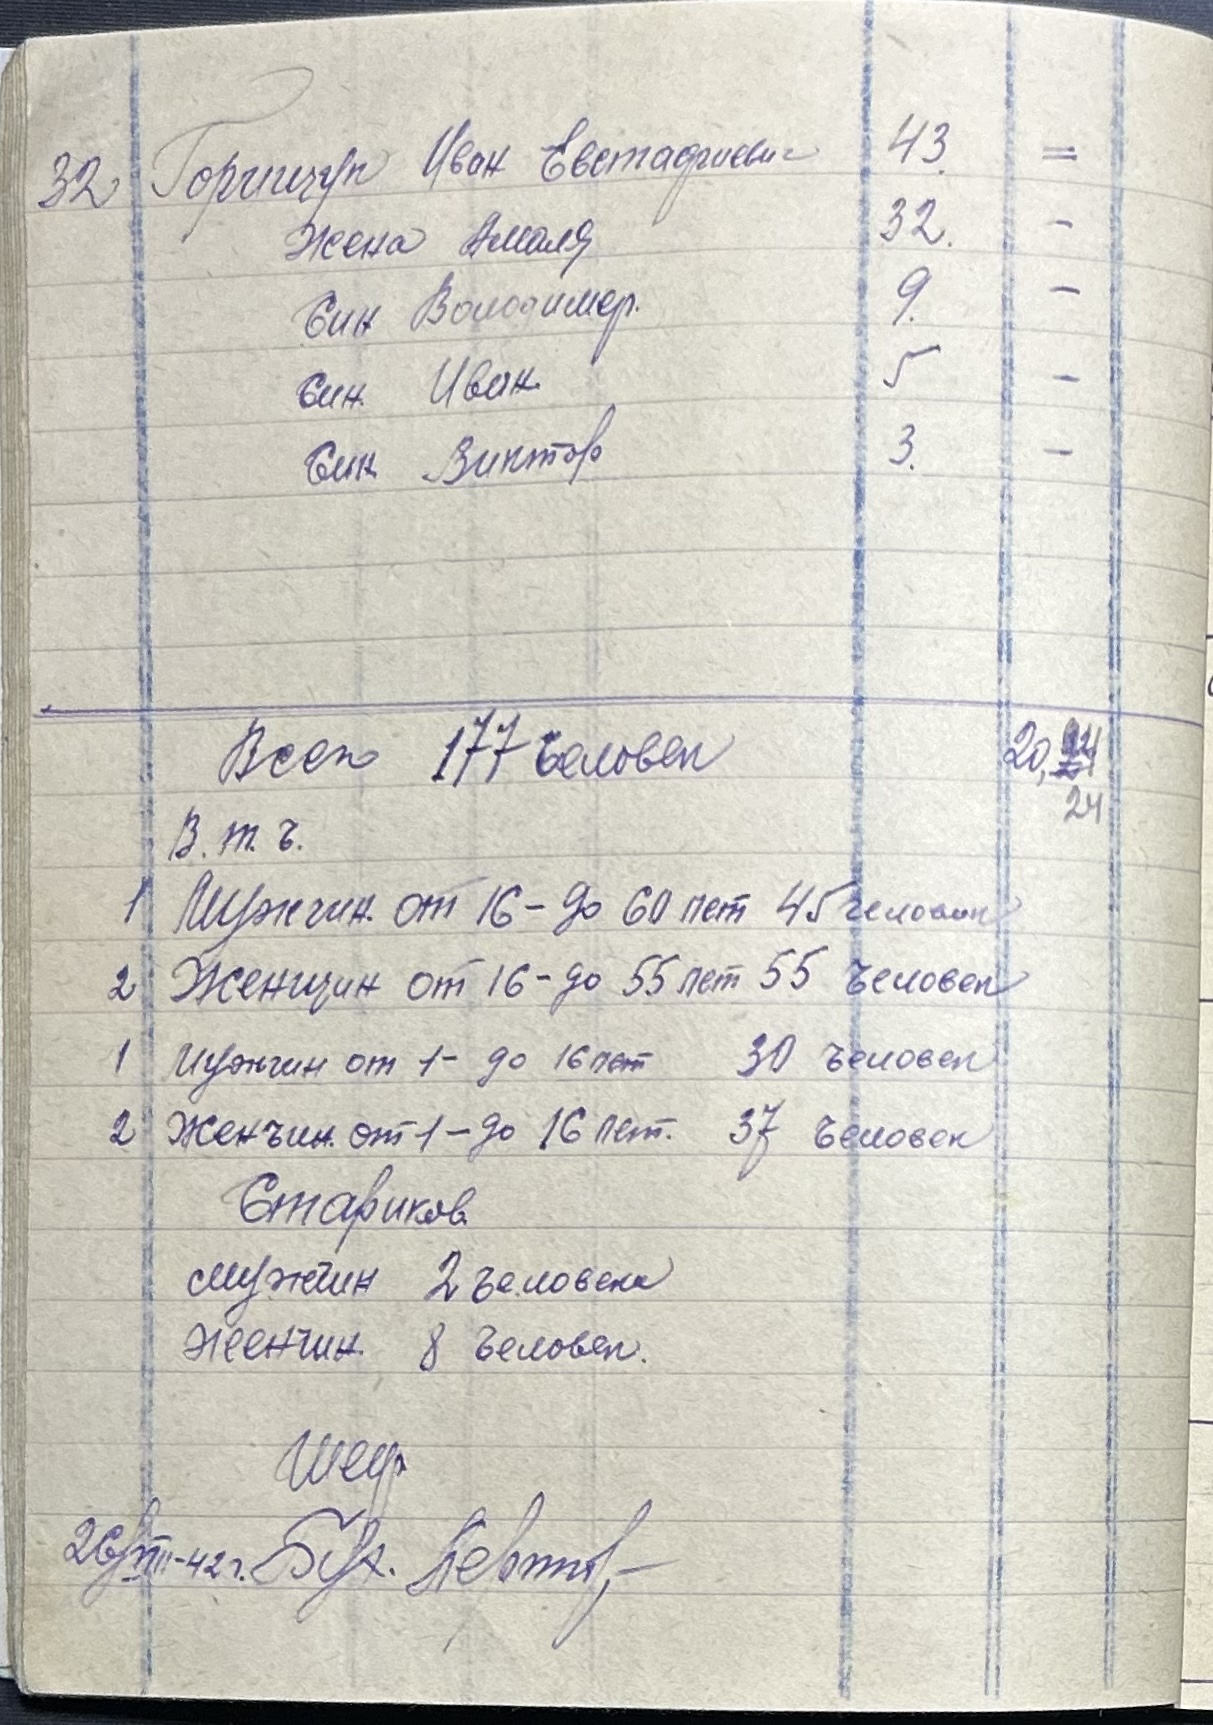 32 Горщчук Иван Евстафиевич 43. =
Жена Амаля 32. -
Син Володимер. 9. -
Син. Иван. 5 -
Син Виктор 3. -
Всего 177 человек 20,
24
В. т. ч.
1 Мужчин от 16 - до 60 лет 45 человек
2 Женщин от 16 - до 55 лет 55 человек
1 Мужчин от 1 - до 16 лет 30 человек
2 Женчин от 1 - до 16 лет. 37 человек
Стариков
мужчин 2 человека
Женчин 8 человек.
26/VIII-42 г. Бух.